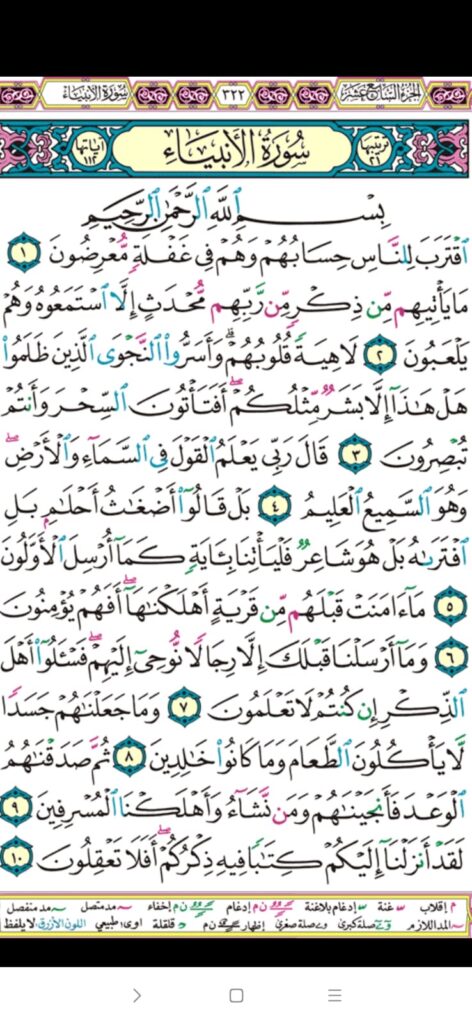 الجزء السابع عشر ٣٢٢ سورة الأنبياء
ترتيبها ٢١ سُورَةُ الأَنبِيَاءِ آياتها ١١٢
بِسْمِ ٱللَّهِ ٱلرَّحْمَٰنِ ٱلرَّحِيمِ
ٱقْتَرَبَ لِلنَّاسِ حِسَابُهُمْ وَهُمْ فِى غَفْلَةٍ مُّعْرِضُونَ ١
مَا يَأْتِيهِم مِّن ذِكْرٍ مِّن رَّبِّهِم مُّحْدَثٍ إِلَّا ٱسْتَمَعُوهُ وَهُمْ
يَلْعَبُونَ ٢ لَاهِيَةً قُلُوبُهُمْ ۗ وَأَسَرُّوا۟ ٱلنَّجْوَى ٱلَّذِينَ ظَلَمُوا۟
هَلْ هَٰذَآ إِلَّا بَشَرٌ مِّثْلُكُمْ ۖ أَفَتَأْتُونَ ٱلسِّحْرَ وَأَنتُمْ
تُبْصِرُونَ ٣ قَالَ رَبِّى يَعْلَمُ ٱلْقَوْلَ فِى ٱلسَّمَآءِ وَٱلْأَرْضِ ۖ
وَهُوَ ٱلسَّمِيعُ ٱلْعَلِيمُ ٤ بَلْ قَالُوٓا۟ أَضْغَٰثُ أَحْلَٰمٍۭ بَلِ
ٱفْتَرَىٰهُ بَلْ هُوَ شَاعِرٌ فَلْيَأْتِنَا بِـَٔايَةٍ كَمَآ أُرْسِلَ ٱلْأَوَّلُونَ
٥ مَآ ءَامَنَتْ قَبْلَهُم مِّن قَرْيَةٍ أَهْلَكْنَٰهَآ ۖ أَفَهُمْ يُؤْمِنُونَ
٦ وَمَآ أَرْسَلْنَا قَبْلَكَ إِلَّا رِجَالًا نُّوحِىٓ إِلَيْهِمْ ۖ فَسْـَٔلُوٓا۟ أَهْلَ
ٱلذِّكْرِ إِن كُنتُمْ لَا تَعْلَمُونَ ٧ وَمَا جَعَلْنَٰهُمْ جَسَدًا
لَّا يَأْكُلُونَ ٱلطَّعَامَ وَمَا كَانُوا۟ خَٰلِدِينَ ٨ ثُمَّ صَدَقْنَٰهُمُ
ٱلْوَعْدَ فَأَنجَيْنَٰهُمْ وَمَن نَّشَآءُ وَأَهْلَكْنَا ٱلْمُسْرِفِينَ ٩
لَقَدْ أَنزَلْنَآ إِلَيْكُمْ كِتَٰبًا فِيهِ ذِكْرُكُمْ ۖ أَفَلَا تَعْقِلُونَ ١٠
م إقلاب غنة إدغام بلاغنة ن م إدغام ن م إخفاء مد متصل مد منفصل
المد اللازم صلة كبرى صلة صغرى إظهار ن م قلقلة اوى طبيعي اللون الأزرق لا يلفظ